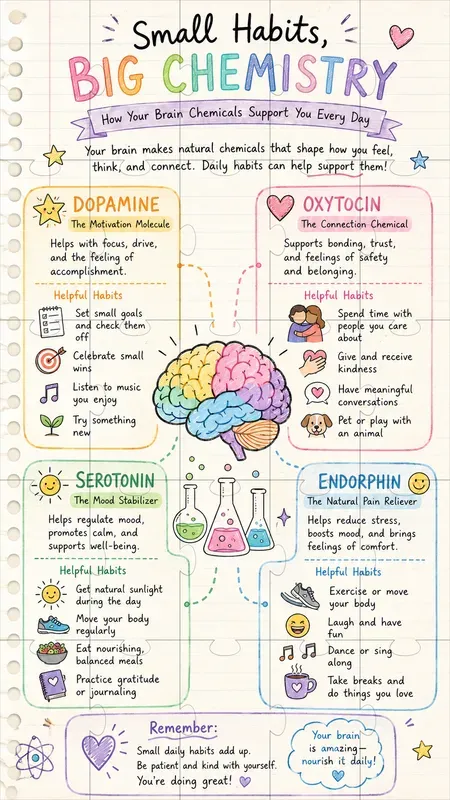 Small Habits,
BIG CHEMISTRY
How Your Brain Chemicals Support You Every Day
Your brain makes natural chemicals that shape how you feel,
think, and connect. Daily habits can help support them!
DOPAMINE
The Motivation Molecule
Helps with focus, drive,
and the feeling of
accomplishment.
Helpful Habits
Set small goals
and check them
off
Celebrate small
wins
Listen to music
you enjoy
Try something
new
OXYTOCIN
The Connection Chemical
Supports bonding, trust,
and feelings of safety
and belonging.
Helpful Habits
Spend time with
people you care
about
Give and receive
kindness
Have meaningful
conversations
Pet or play with
an animal
SEROTONIN
The Mood Stabilizer
Helps regulate mood,
promotes calm, and
supports well-being.
Helpful Habits
Get natural sunlight
during the day
Move your body
regularly
Eat nourishing,
balanced meals
Practice gratitude
or journaling
ENDORPHIN
The Natural Pain Reliever
Helps reduce stress,
boosts mood, and brings
feelings of comfort.
Helpful Habits
Exercise or move
your body
Laugh and have
fun
Dance or sing
along
Take breaks and
do things you love
Remember:
Small daily habits add up.
Be patient and kind with yourself.
You're doing great!
Your brain
is amazing—
nourish it daily!